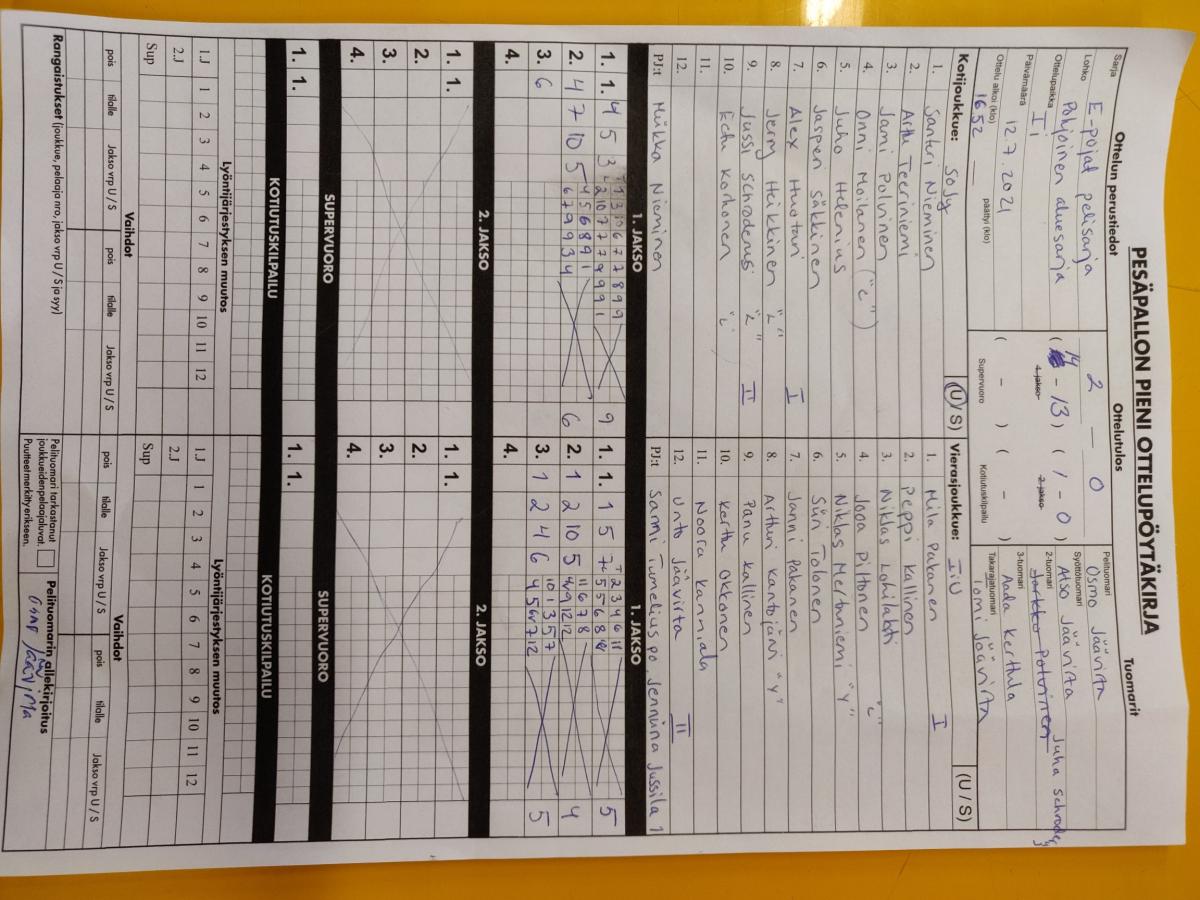 PESÄPALLON PIENI OTTELUPÖYTÄKIRJA
Ottelun perustiedot
Sarja
E-pojat pelisarja
Lohko
Pohjoinen aluesarja
Ottelupaikka
Ii
Päivämäärä
12.7.2021
Ottelu alkoi (klo) päättyi (klo)
1652
Ottelutulos
2 — 0
(14 - 13) (1 - 0)
1. jakso 2. jakso
( - ) ( - )
Supervuoro Kotiutuskilpailu
Tuomarit
Pelituomari
Osmo Jäävirta
Syöttötuomari
Atso Jäävirta
2-tuomari
Jarkko Polvinen Juha Schroderus
3-tuomari
Aada Kerttula
Takarajatuomari
Tomi Jäävirta
Kotijoukkue: SoJy (U/S)
1. Santuri Nieminen
2. Arttu Teeriniemi
3. Jami Polvinen
4. Onni Moilanen ("c")
5. Juho Helenius
6. Jasper Säkkinen
7. Alex Huotari I
8. Jerry Heikkinen "L"
9. Jussi Schroderus "L" II
10. Eetu Korhonen "L"
11.
12.
PJ:t Miikka Nieminen
Vierasjoukkue: IiU (U/S)
1. Mila Pakanen I
2. Peppi Kallinen
3. Niklas Lohilahti
4. Joya Piltonen "L"
5. Niklas Mertaniemi "Y"
6. Siiri Tolonen
7. Janni Pakanen
8. Artturi Kantojärvi "Y"
9. Panu Kallinen
10. Kerttu Okkonen
11. Noora Kanniala
12. Unto Jäävirta II
PJ:t Sanni Tumelius po Jenniina Jussila 1
1. JAKSO 1. JAKSO
1. 1. 4 5 3 9
2. 4 7 10 5 6
3. 6
4.
1. 1. 1 5 7 5
2. 1 2 10 5 4
3. 1 2 4 6 5
4.
2. JAKSO 2. JAKSO
1. 1.
2.
3.
4.
1. 1.
2.
3.
4.
SUPERVUORO SUPERVUORO
1. 1.
1. 1.
KOTIUTUSKILPAILU KOTIUTUSKILPAILU
Lyöntijärjestyksen muutos Lyöntijärjestyksen muutos
1.J 1 2 3 4 5 6 7 8 9 10 11 12
2.J
Sup
1.J 1 2 3 4 5 6 7 8 9 10 11 12
2.J
Sup
Vaihdot Vaihdot
pois tilalle Jakso vrp U / S pois tilalle Jakso vrp U / S
pois tilalle Jakso vrp U / S pois tilalle Jakso vrp U / S
Rangaistukset (joukkue, pelaaja nro, jakso vrp U / S ja syy)
Pelituomari tarkastanut
joukkueiden pelaajaluvat.
Puutteet merkitty erikseen.
Pelituomarin allekirjoitus
Osmo Jäävirta